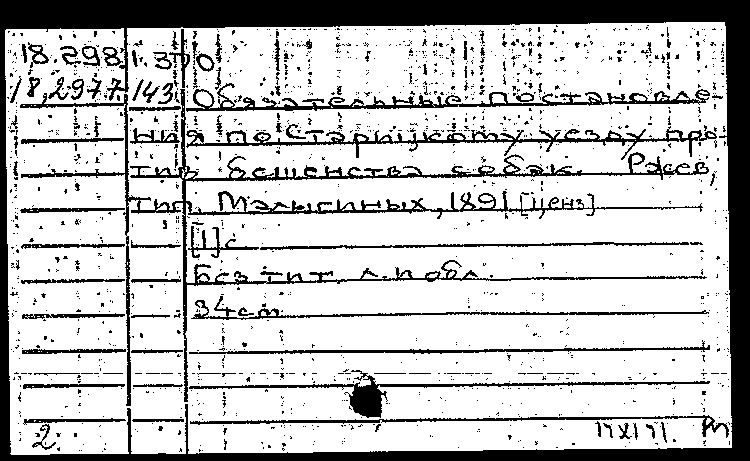 18.298 1.370
18,2977 143 Обязательные постановле-
ния по Старицкому уезду про-
тив бешенства собак. Ржев,
тип. Малыгиных, 1891 [ценз]
[1] с
Без тит. л. и обл.
34 cm
2 17 XI 71.